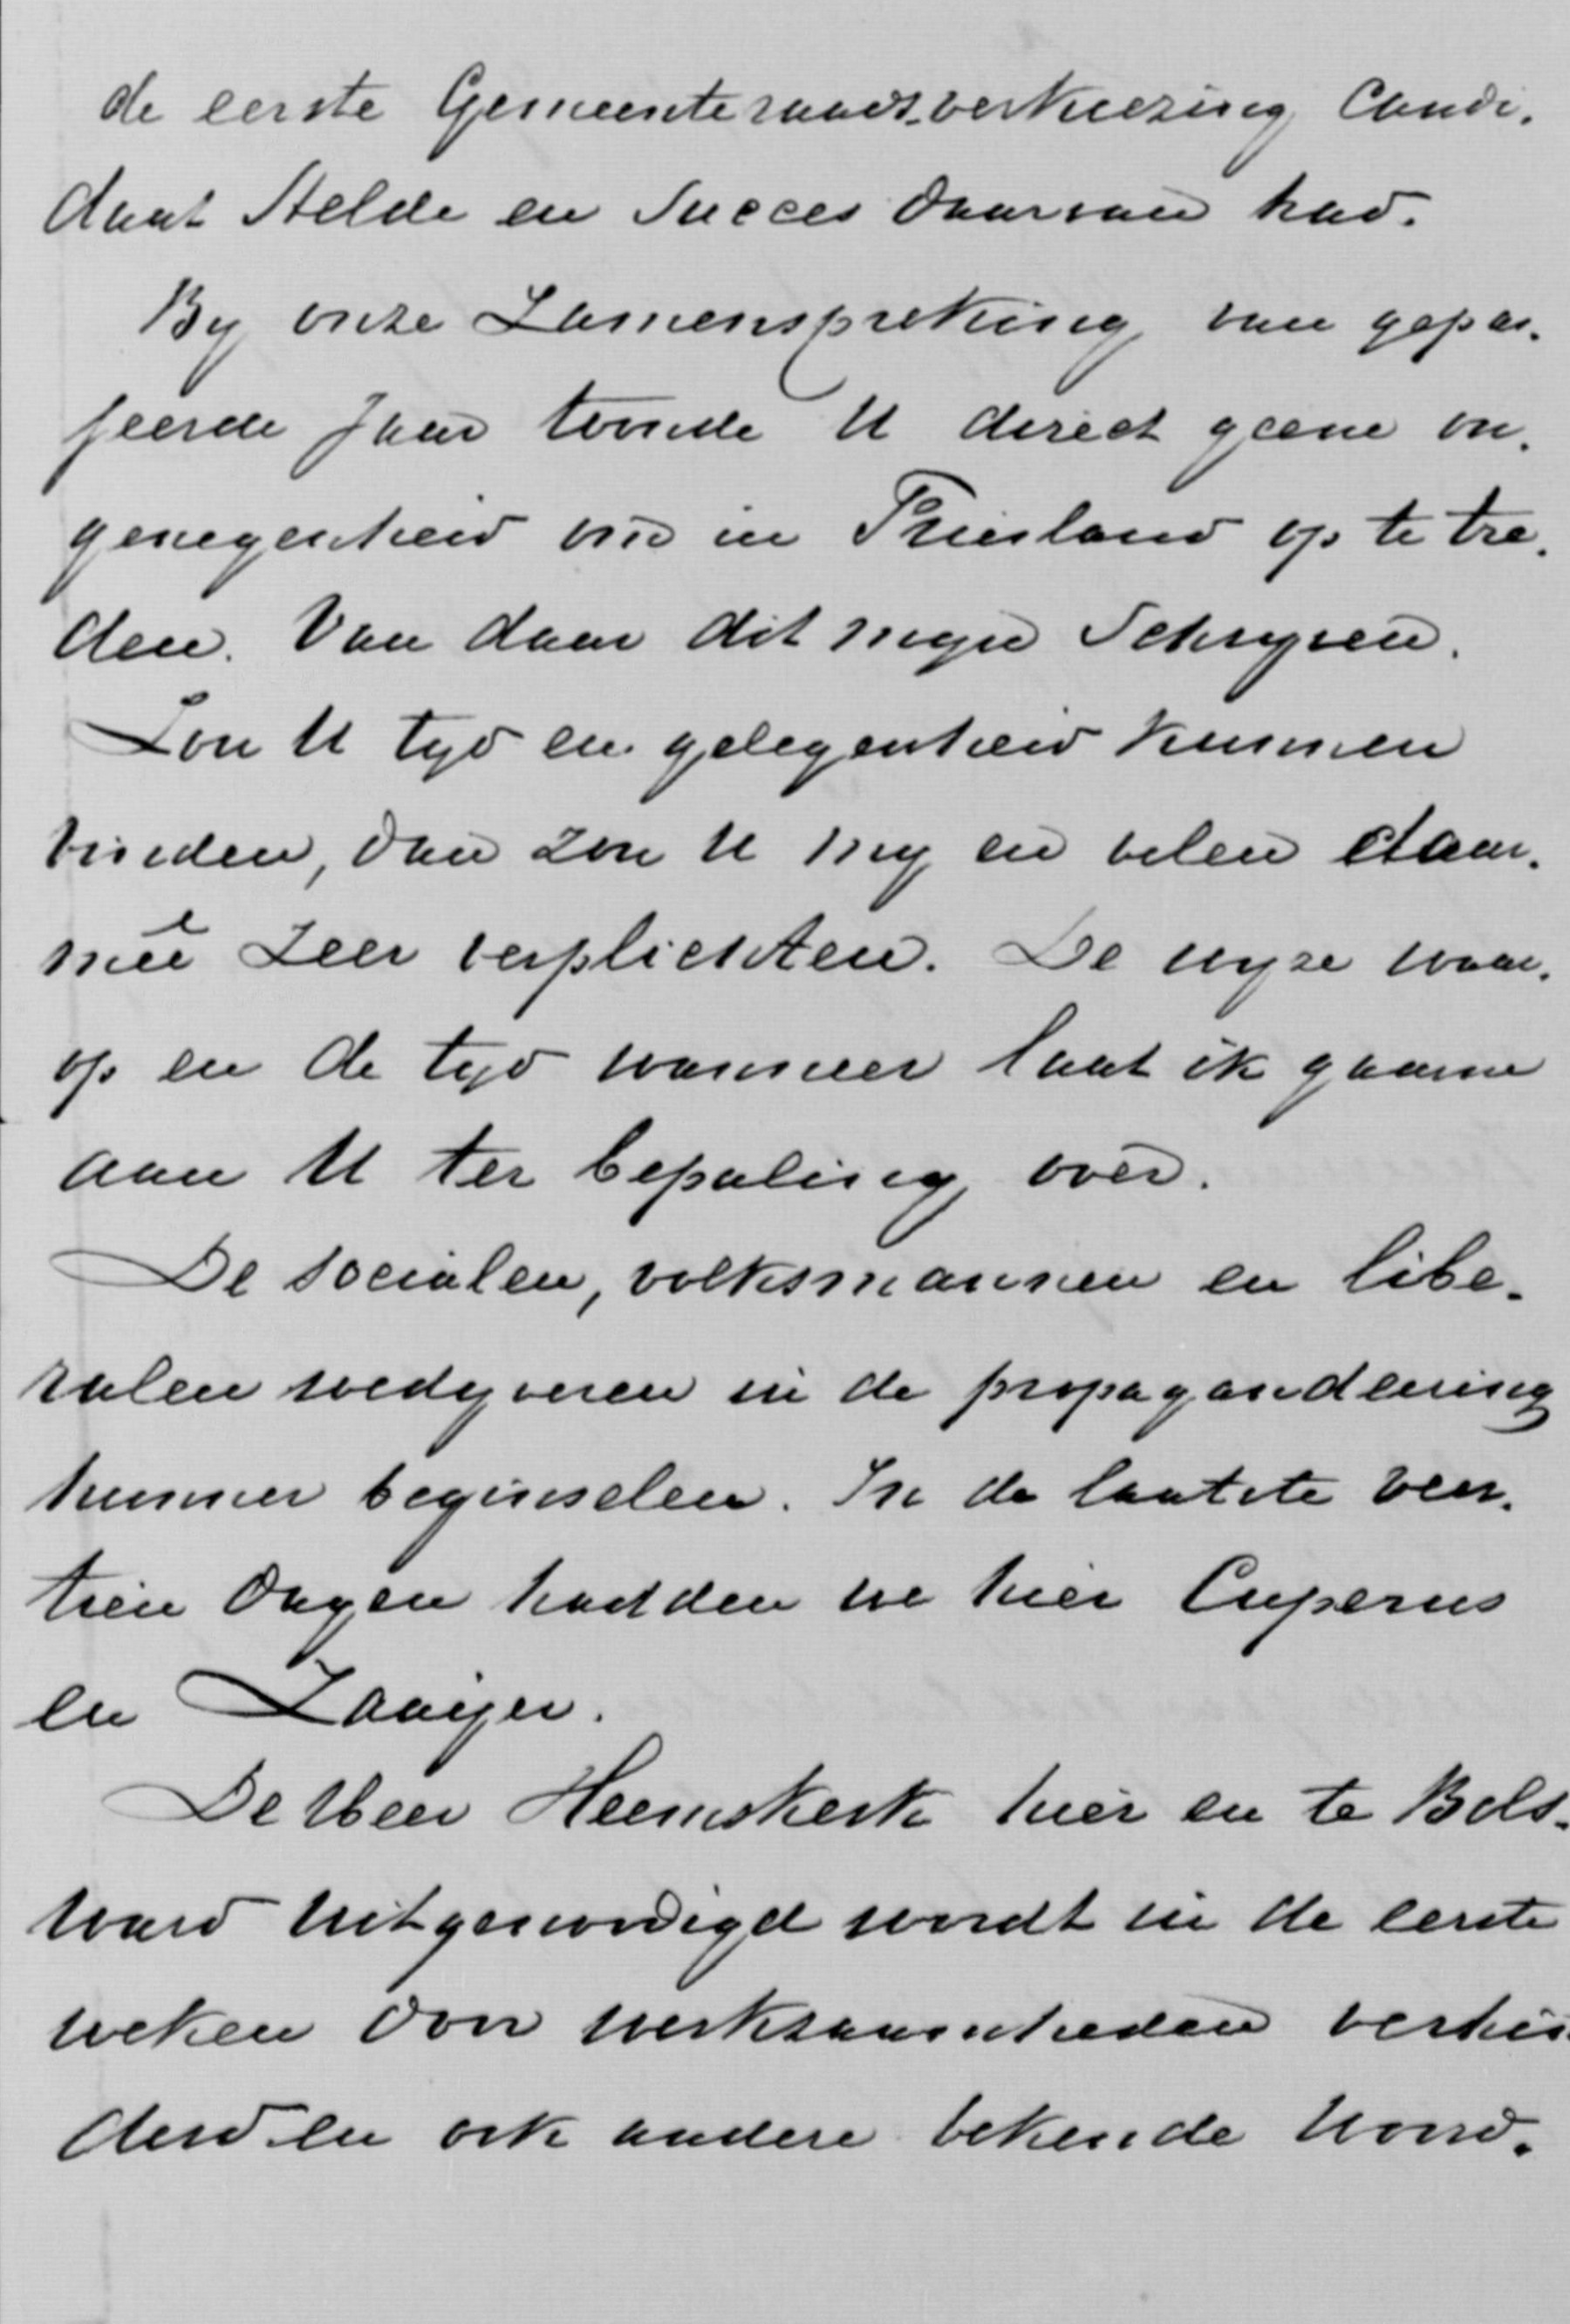 de eerste Gemeenteraadsverkiezing Candi-
daat stelde en succes daarvan had.
By onze Zamenspreking van gepas-
seerde jaar toonde U direct geene on-
genegenheid om in Friesland op te tre-
den. Van daar dit mijn Schryven.
Zou U tyd en gelegenheid kunnen
vinden, dan zou U my en velen daar-
meê zeer verplichten. De wyze waar-
op en de tyd wanneer laat ik gaarne
aan U ter bepaling over.
De socialen, volksmannen en libe-
ralen wedyveren in de propagandeering
hunner beginselen. In de laatste veer-
tien dagen hadden we hier Cuperus
en Zaaijer.
De Heer Heemskerk hier en te Bols-
ward uitgenoodigd wordt in de eerste
weken door werkzaamheden verhin-
derd en ook andere bekende Noord-